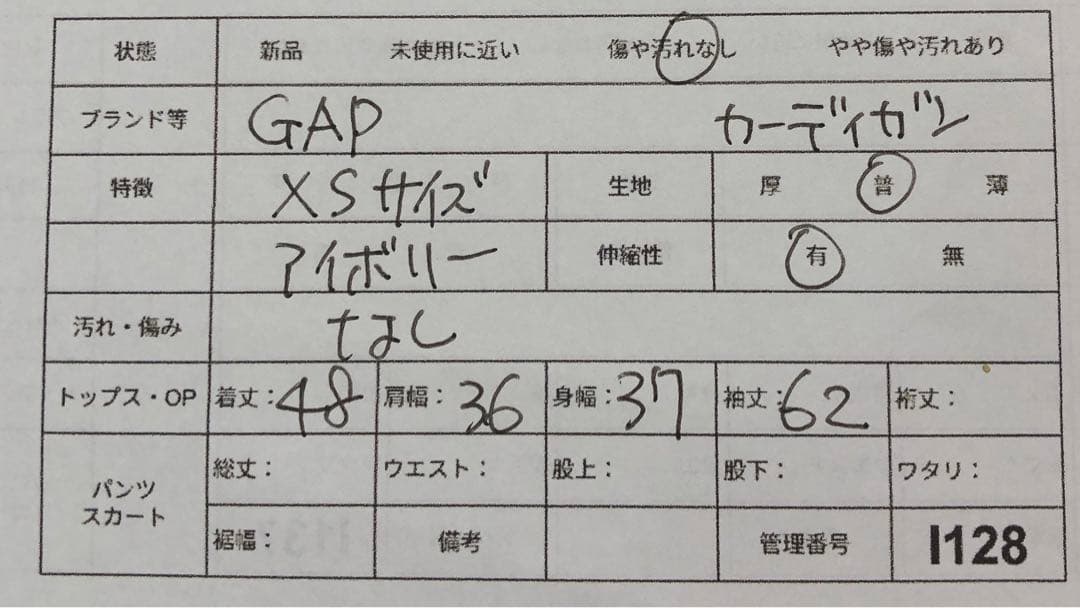 状態 新品 未使用に近い 傷や汚れなし やや傷や汚れあり
ブランド等 GAP カーディガン
特徴 XSサイズ 生地 厚 普 薄
アイボリー 伸縮性 有 無
汚れ・傷み なし
トップス・OP 着丈：48 肩幅：36 身幅：37 袖丈：62 裄丈：
パンツ
スカート
総丈： ウエスト： 股上： 股下： ワタリ：
裾幅： 備考 管理番号 I128